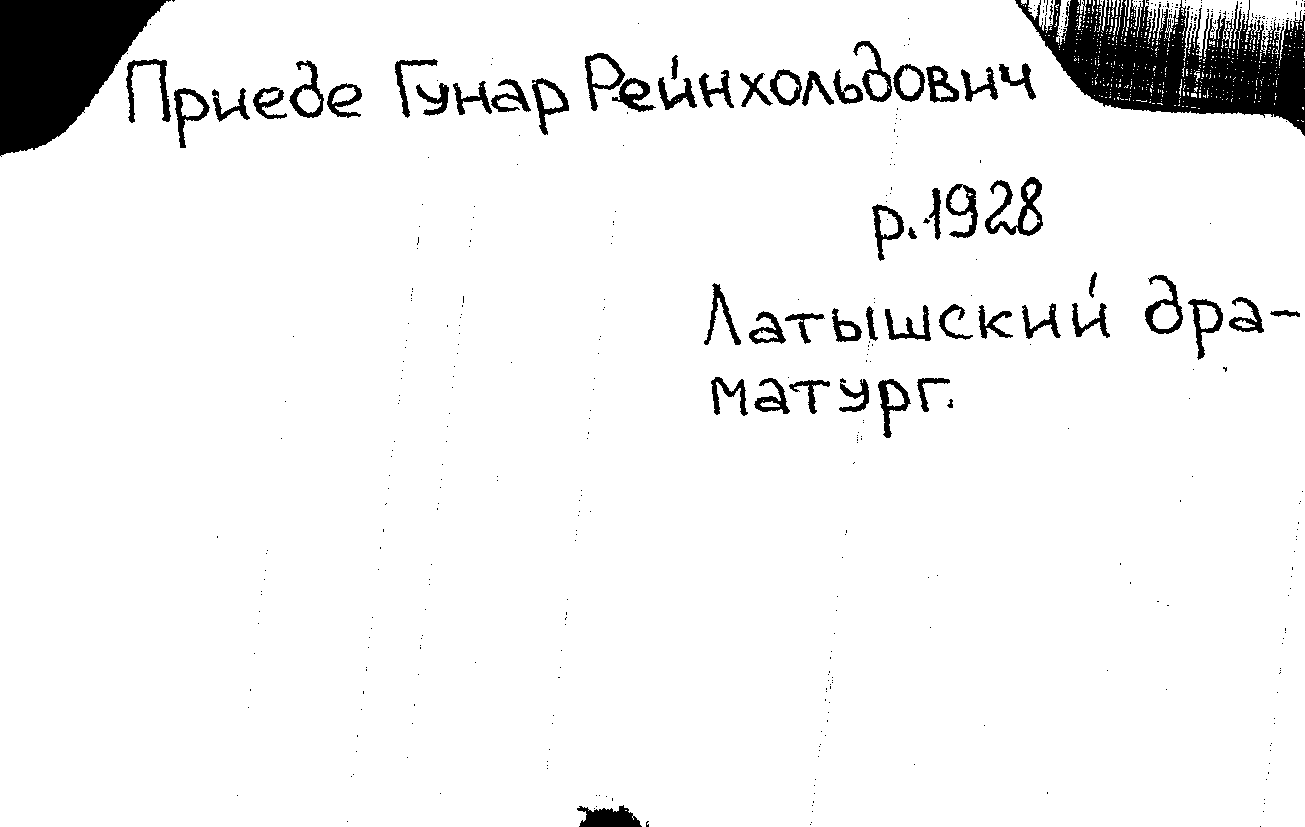 Приеде Гунар Рейнхольдович
р. 1928
Латышский дра-
матург.